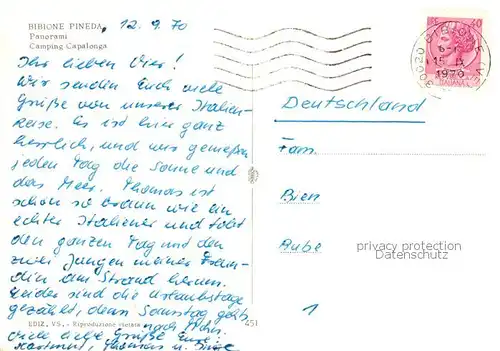 BIBIONE PINEDA, 12.9.70
Panorami
Camping Capalonga
Ihr lieben Vier!
Wir senden Euch viele
Grüße von unserer Italien-
reise. Es ist hier ganz
herrlich, und wir genießen
jeden Tag die Sonne und
das Meer. Thomas ist
schon so braun wie ein
echter Italiener und tobt
den ganzen Tag mit den
zwei Jungen meiner Freun-
din am Strand herum.
Leider sind die Urlaubstage
gezählt, denn Samstag geht's
nach
Viele liebe Grüße Eure
Thomas u.
EDIZ. V.S. - Riproduzione vietata
451
30020 BIBIONE
15. 9.
1970
Deutschland
Fam.
Bien
Bube
1
privacy protection
Datenschutz